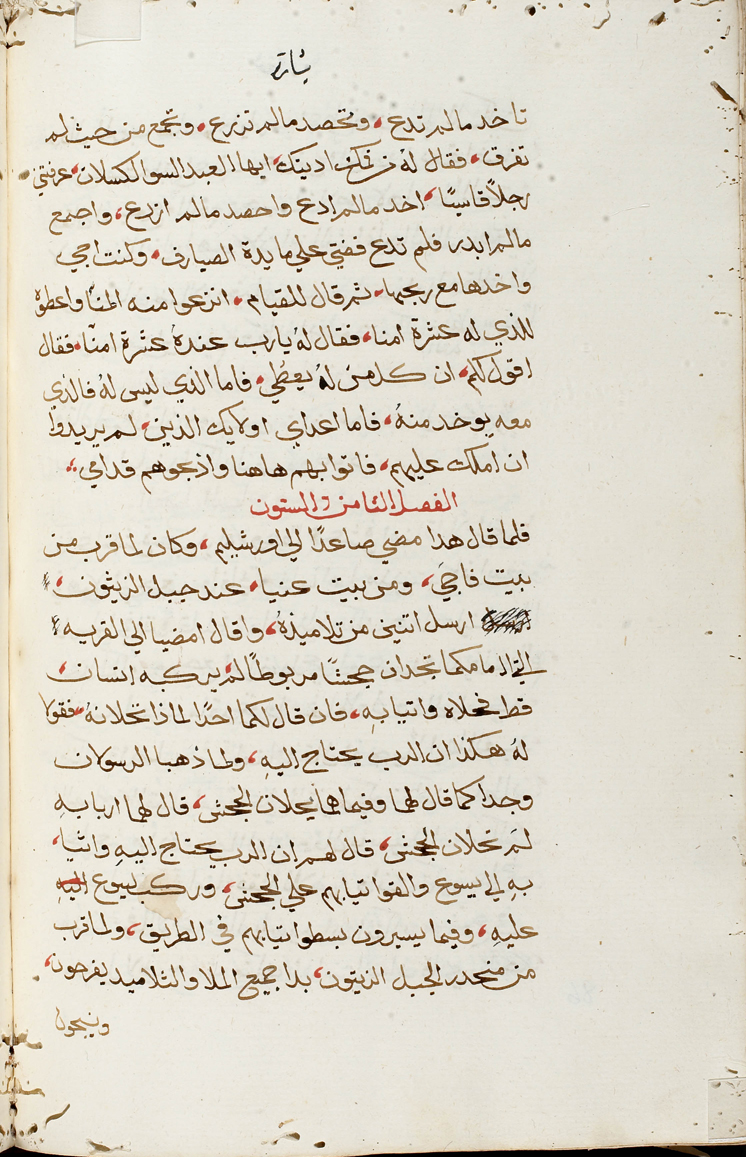 بشارة
تاخد مالم تدع، وتحصد مالم تزرع، وتجمع من حيث لم
تفرق، فقال له من فمك ادينك، ايها العبد السو الكسلان، عرفتني
رجلاً قاسيًا، اخد مالم ادع واحصد مالم ازرع، واجمع
مالم ابدر فلم تدع فضتي علي مايدة الصيارف، وكنت اجي
واخدها مع ربحها، ثم قال للقيام، انزعوا منه المنّا واعطوه
للذي له عشرة امنا، فقال له يارب عنده عشرة امنّا، فقال
اقول لكم، ان كل من له يعطي، فاما الذي ليس له فالذي
معه يوخد منهُ، فاما اعداي اولايك الذين، لم يريدوا
ان املك عليهم، فاتوا بهم هاهنا واذبحوهم قدامي
الفصل الثامن والستون
فلما قال هدا مضي صاعدًا الي اورشليم، وكان لما قرب من
بيت فاجي، ومن بيت عنيا، عند جبل الزيثون،
ارسل اتنين من تلاميذهُ، واقال امضيا الي القريه
التي امامكما تجدان جحشًا مربوطًا لم يركبه انسان،
قط فحلاه واتيا بهِ، فان قال لكما احدًا لماذا تحلانهُ، فقولا
لهُ هكذا ان الرب يحتاج اليهِ، ولما ذهبا الرسولان
وجدا كما قال لهما وفيما هما يحلان الجحش، قال لهما اربابهِ
لمَ تحلان الجحش، قال لهم ان الرب يحتاج اليهِ واتيا،
بهِ الي يسوع والقوا تيابهم علي الجحش، وركب يسوع اليه
عليهِ، وفيما يسيرون بسطوا تيابهم في الطريق، ولما قرب
من منحدر الجبل الزيتون، بدا جميع الملا والتلاميد يفرحون،
ويسبحون